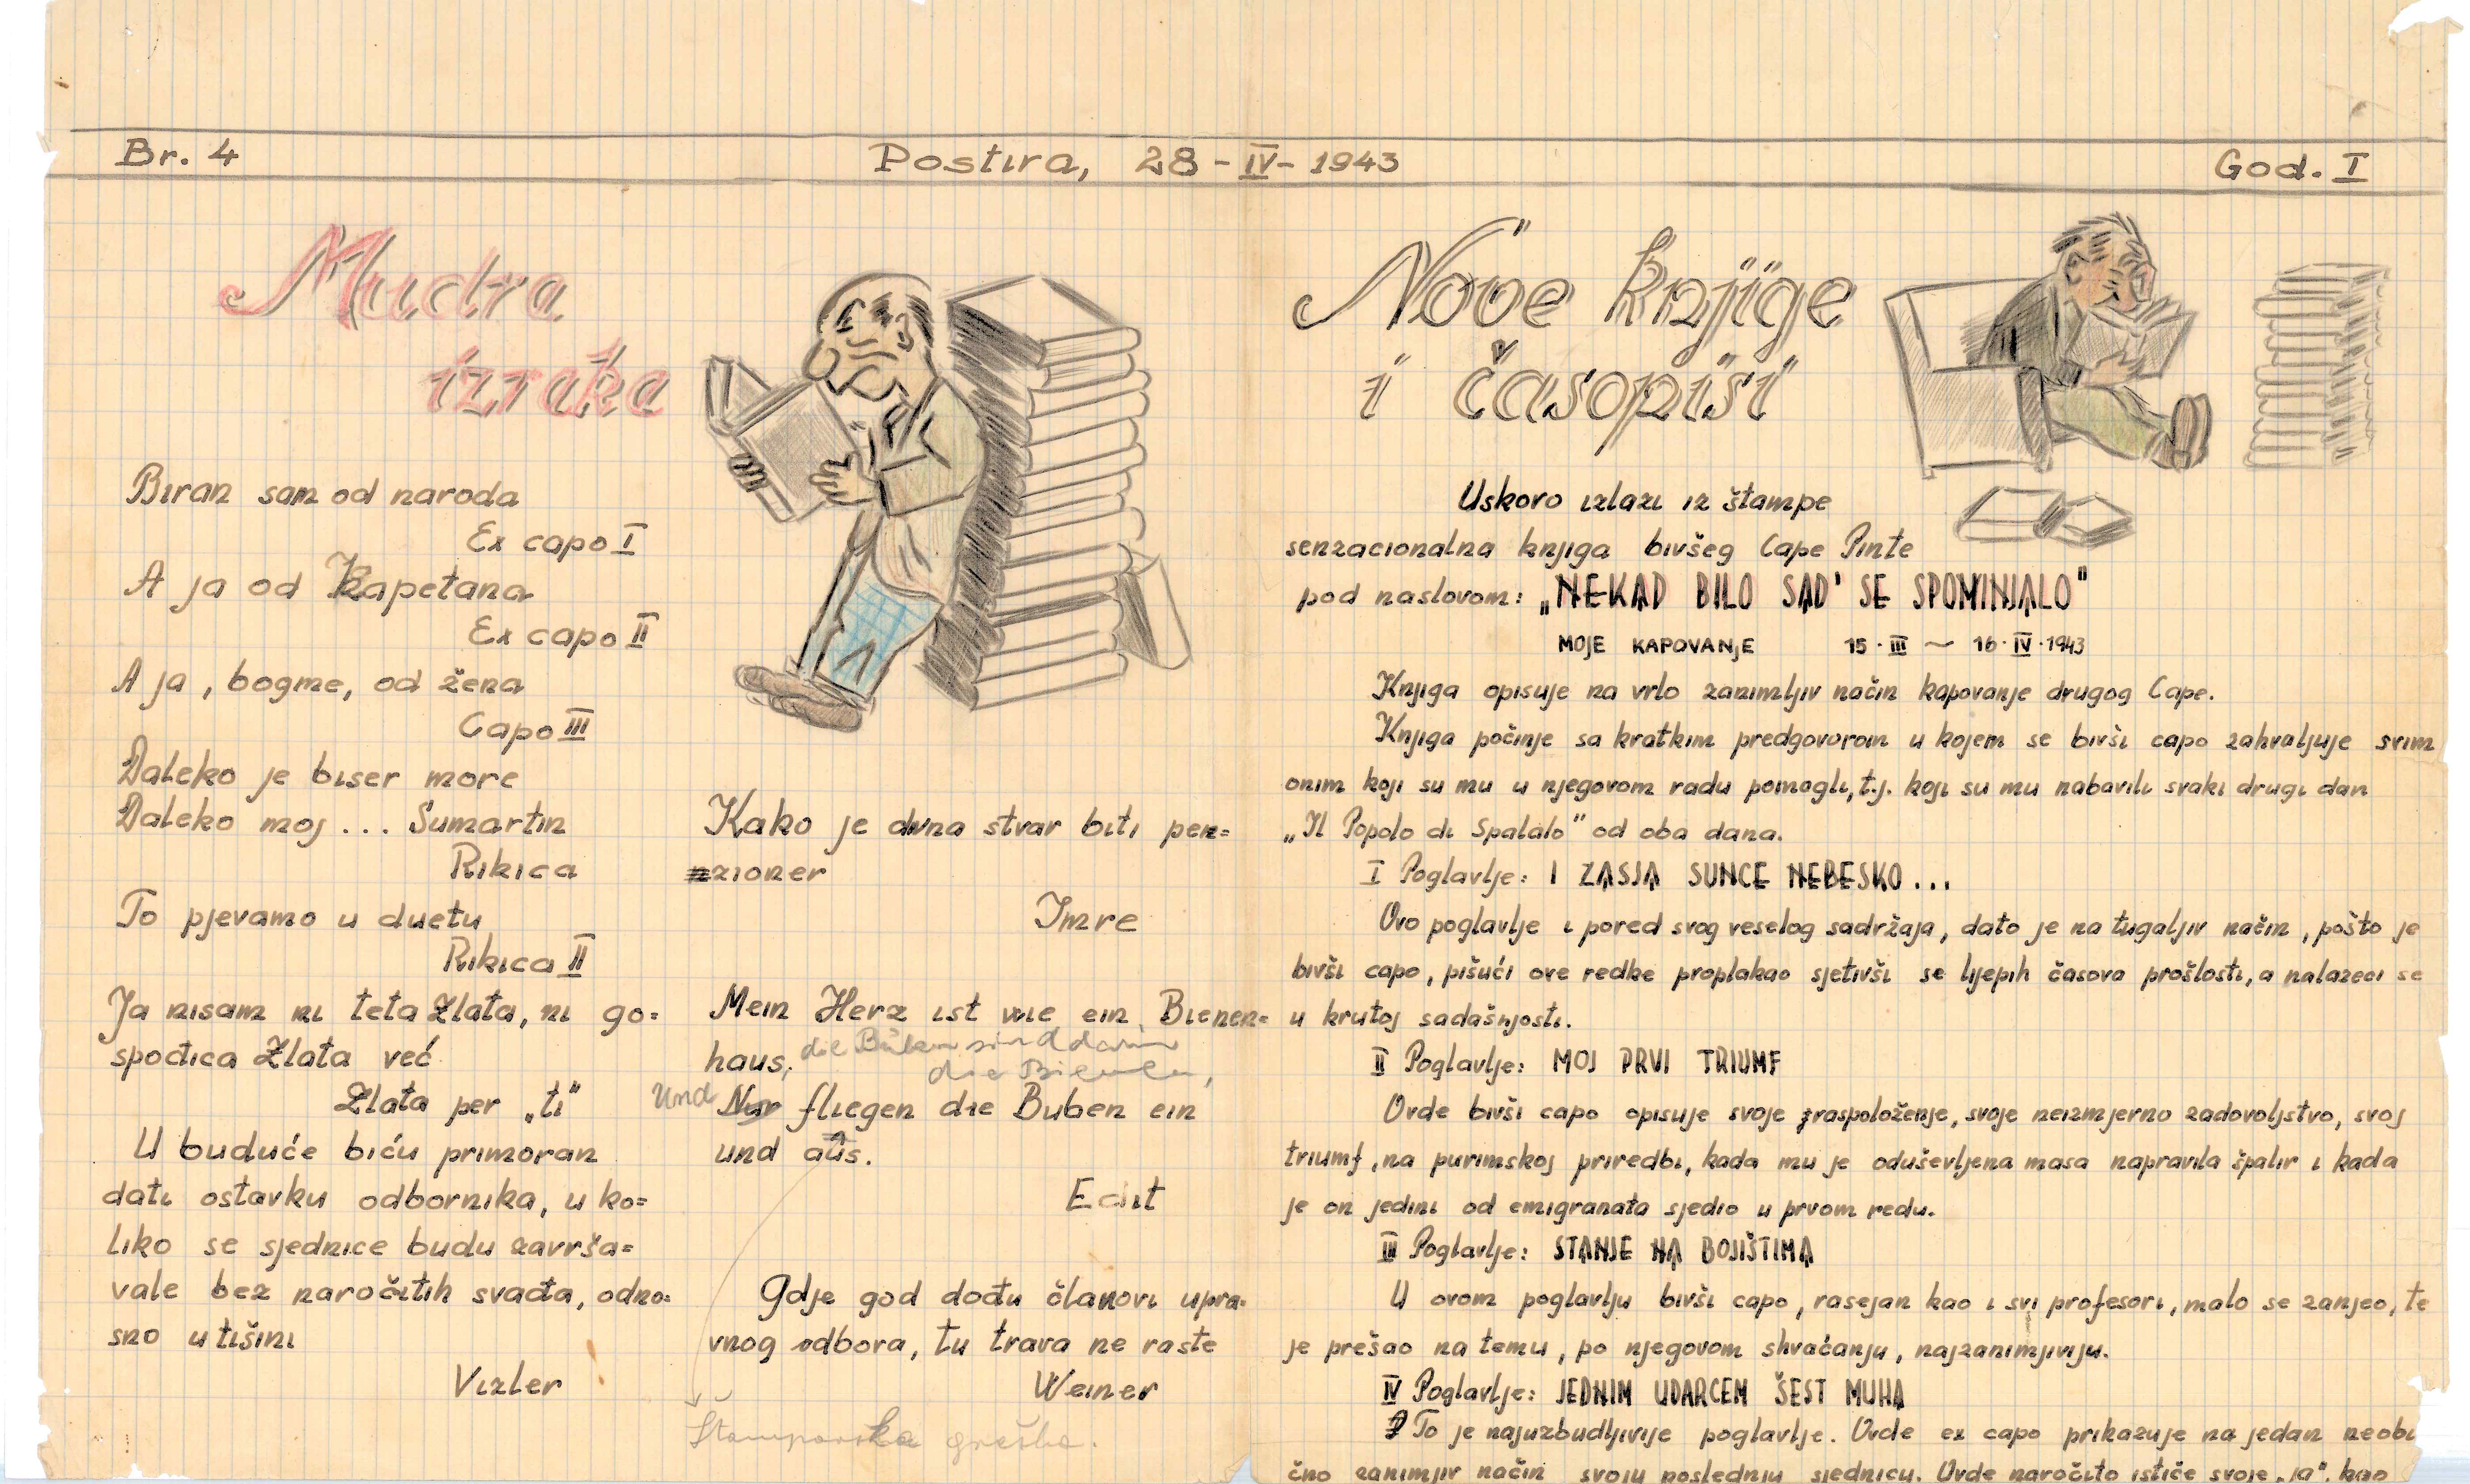 Br. 4
Postira, 28-IV-1943
God. I
Mudra
izreke
Biran sam od naroda
Ex capo I
A ja od Kapetana
Ex capo II
A ja, bogme, od žena
Capo III
Daleko je biser more
Daleko moj ... Sumartin
Rikica
To pjevamo u duetu
Rikica II
Ja nisam ni teta Zlata, ni go=
spođica Zlata već
Zlata per „ti"
U buduće biću primoran
dati ostavku odbornika, u ko=
liko se sjednice budu završa=
vale bez naročitih svađa, odno=
sno u tišini
Vizler
Kako je divna stvar biti pen=
zioner
Imre
Mein Herz ist wie ein Bienen=
haus, die Buben sind darin
die Bienen,
Und Nur fliegen die Buben ein
und aus.
Edit
Gdje god dođu članovi upra=
vnog odbora, tu trava ne raste
Weiner
Štamparska greška.
Nove knjige
i časopisi
Uskoro izlazi iz štampe
senzacionalna knjiga bivšeg Cape Pinte
pod naslovom: „NEKAD BILO SAD' SE SPOMINJALO"
MOJE KAPOVANJE 15·III ~ 16·IV·1943
Knjiga opisuje na vrlo zanimljiv način kapovanje drugog Cape.
Knjiga počinje sa kratkim predgovorom u kojem se bivši capo zahvaljuje svim
onim koji su mu u njegovom radu pomogli, t.j. koji su mu nabavili svaki drugi dan
„Il Popolo di Spalato" od oba dana.
I Poglavlje: I ZASJA SUNCE NEBESKO...
Ovo poglavlje i pored svog veselog sadržaja, dato je na tugaljiv način, pošto je
bivši capo, pišući ove redke proplakao sjetivši se lijepih časova prošlosti, a nalazeći se
u krutoj sadašnjosti.
II Poglavlje: MOJ PRVI TRIUMF
Ovde bivši capo opisuje svoje raspoloženje, svoje neizmjerno zadovoljstvo, svoj
triumf, na purimskoj priredbi, kada mu je oduševljena masa napravila špalir i kada
je on jedini od emigranata sjedio u prvom redu.
III Poglavlje: STANJE NA BOJIŠTIMA
U ovom poglavlju bivši capo, rasejan kao i svi profesori, malo se zanjeo, te
je prešao na temu, po njegovom shvaćanju, najzanimjiviju.
IV Poglavlje: JEDNIM UDARCEM ŠEST MUHA
To je najuzbudljivije poglavlje. Ovde ex capo prikazuje na jedan neobi
čno zanimjiv način svoju poslednju sjednicu. Ovde naročito ističe svoje „ja", kao